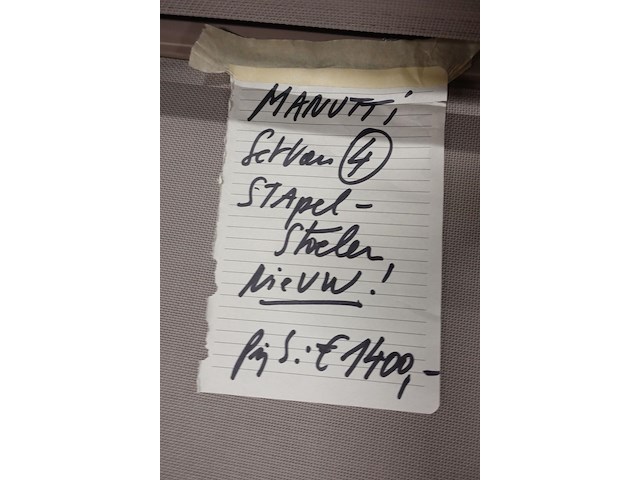 MANUTTi
Set van 4
STApel-
Stoelen
NieUW!
Prijs: € 1400,-